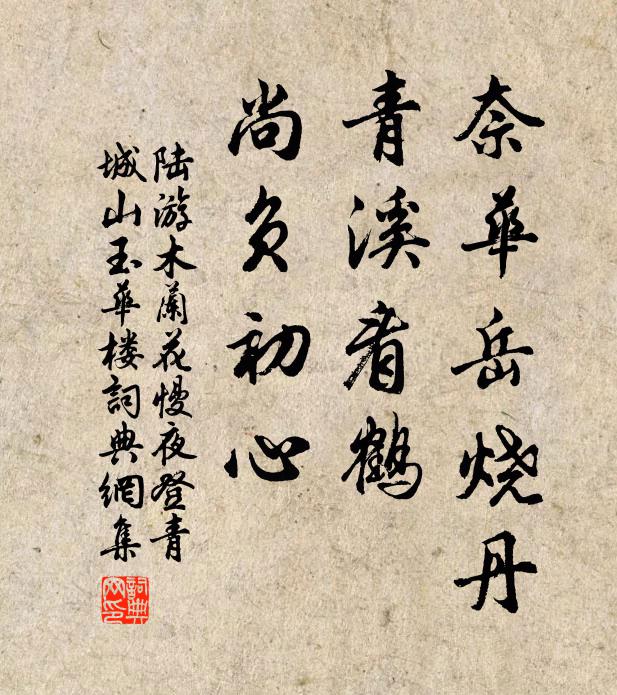 奈華岳烧丹
青溪看鹤
尚负初心
陆游木蘭花慢夜登青
城山玉华楼詞典網集
詞典网印